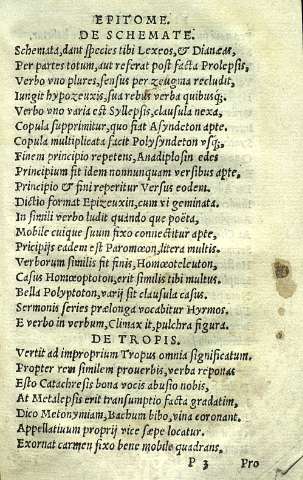 EPITOME.
DE SCHEMATE.
Schemata, dant species tibi Lexeos, & Dianææ,
Per partes totum, aut referat post facta Prolepsis,
Verbo vno plures, sensus per zeugma recludit,
Iungit hypozeuxis, sua rebus verba quibusq;.
Verbo vno varia est Syllepsis, clausula nexa,
Copula supprimitur, quo fiat Asyndeton apte.
Copula multiplicata facit Polysyndeton vsq;,
Finem principio repetens, Anadiplosin edes
Principium sit idem nonnunquam versibus apte,
Principio & fini reperitur Versus eodem.
Dictio format Epizeuxin, cum vi geminata.
In simili verbo ludit quando que poëta,
Mobile cuique suum fixo connectitur apte,
Pricipijs eadem est Paromœon, litera multis.
Verborum similis fit finis, Homœoteleuton,
Casus Homœoptoton, erit similis tibi multus.
Bella Polyptoton, varij sit clausula casus.
Sermonis series prælonga vocabitur Hyrmos.
E verbo in verbum, Climax it, pulchra figura.
DE TROPIS.
Vertit ad improprium Tropus omnia significatum.
Propter rem similem prouerbis, verba reponas
Esto Catachresis bona vocis abusio nobis,
At Metalepsis erit transumptio facta gradatim,
Dico Metonymiam, Bachum bibo, vina coronant.
Appellatiuum proprij vice sæpe locatur.
Exornat carmen fixo bene mobile quadrans.
P 3 Pro